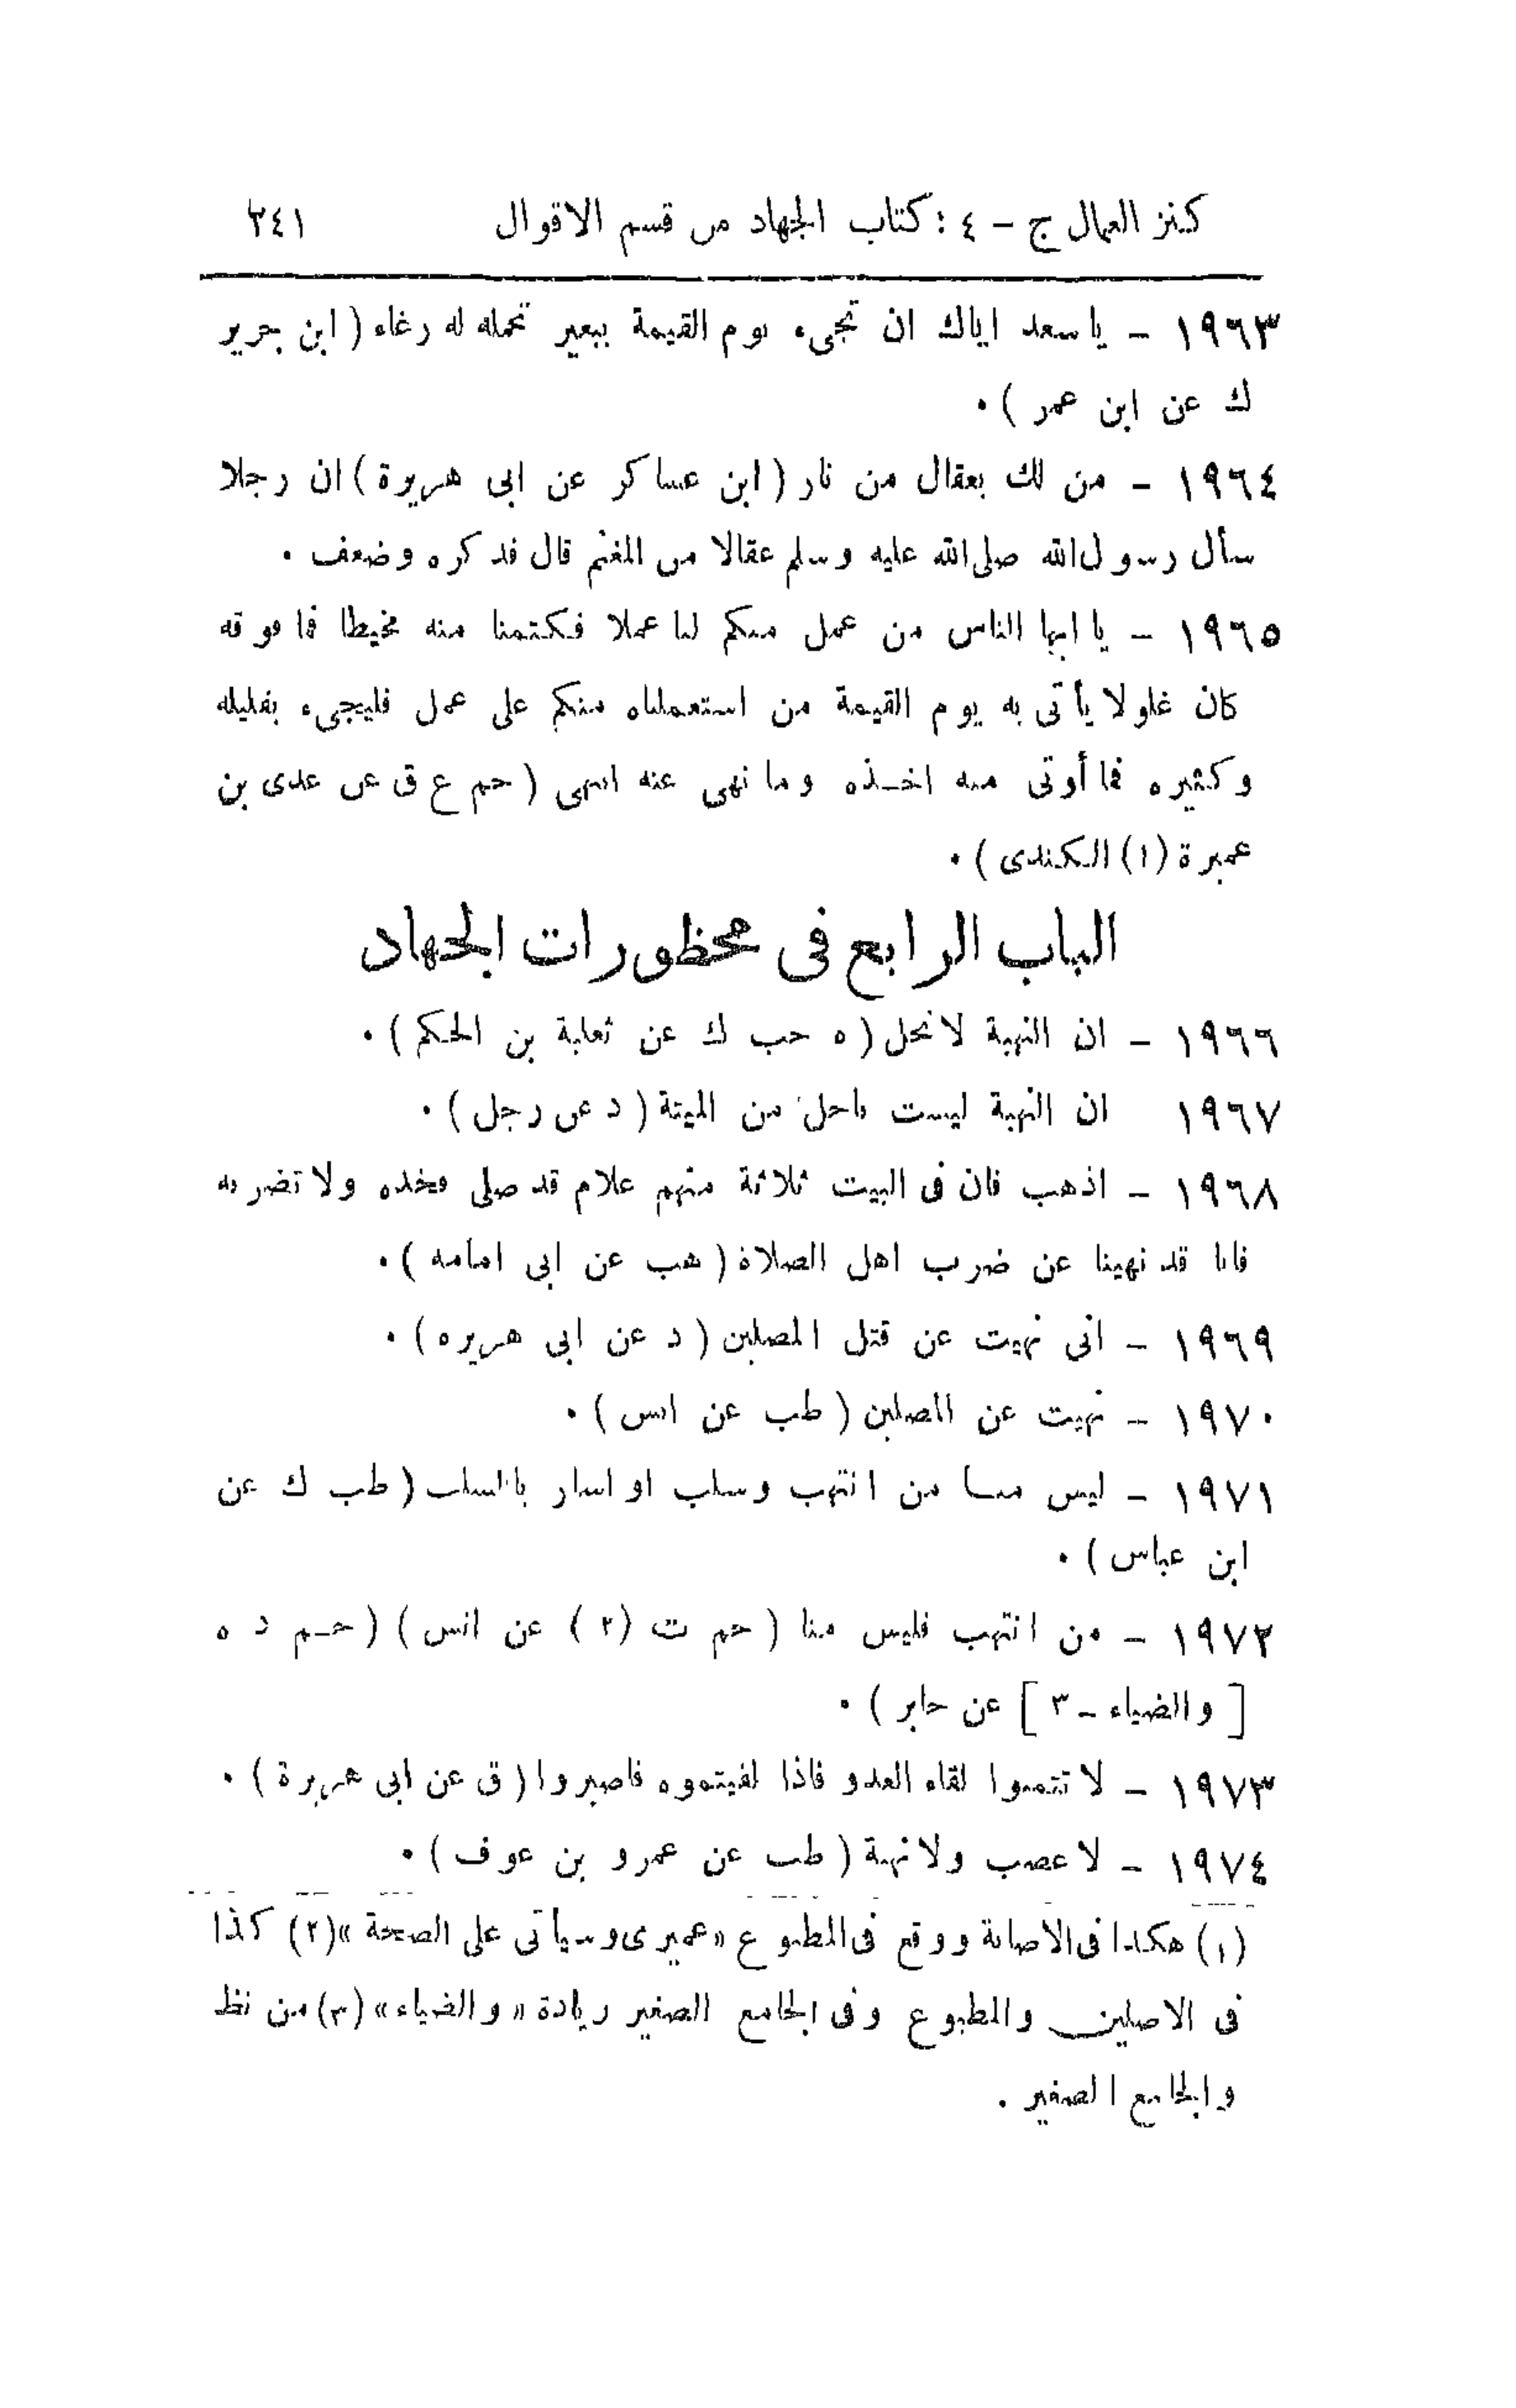 كنز العمال ج - ٤ : كتاب الجهاد من قسم الاقوال ٢٤١
١٩٦٣ - يا سعد اياك ان تجىء يوم القيمة ببعير تحمله له رغاء ( ابن جرير
ك عن ابن عمر ) .
١٩٦٤ - من لك بعقال من نار ( ابن عساكر عن ابى هريرة ) ان رجلا
سأل رسول الله صلى الله عليه وسلم عقالا من المغنم قال فدكره وضعف .
١٩٦٥ - يا ايها الناس من عمل منكم لنا عملا فكتمنا منه مخيطا فما فوقه
كان غلولا يأتى به يوم القيمة من استعملناه منكم على عمل فليجىء بقليله
وكثيره فما أوتى منه اخذه وما نهى عنه انتهى ( حم ع ق عن عدى بن
عميرة (١) الكندى ) .
الباب الرابع فى محظورات الجهاد
١٩٦٦ - ان النهبة لا تحل ( ه حب ك عن ثعلبة بن الحكم ) .
١٩٦٧ ان النهبة ليست باحل من الميتة ( د عن رجل ) .
١٩٦٨ - اذهب فان فى البيت ثلاثة منهم غلام قد صلى فخذه ولا تضربه
فانا قد نهينا عن ضرب اهل الصلاة ( هب عن ابى امامه ) .
١٩٦٩ - انى نهيت عن قتل المصلين ( د عن ابى هريره ) .
١٩٧٠ - نهيت عن المصلين ( طب عن انس ) .
١٩٧١ - ليس منا من انتهب وسلب او اشار بالسلب ( طب ك عن
ابن عباس ) .
١٩٧٢ - من انتهب فليس منا ( حم ت (٢) عن انس ) ( حم د ه
[ والضياء - ٣ ] عن جابر ) .
١٩٧٣ - لا تتمنوا لقاء العدو فاذا لقيتموه فاصبروا ( ق عن ابى هريرة ) .
١٩٧٤ - لا غصب ولا نهبة ( طب عن عمرو بن عوف ) .
(١) هكذا فى الاصابة ووقع فى المطبوع «عميرى وسيأتى على الصحة» (٢) كذا
فى الاصلين والمطبوع وفى الجامع الصغير زيادة «والضياء» (٣) من نظ
والجامع الصغير .